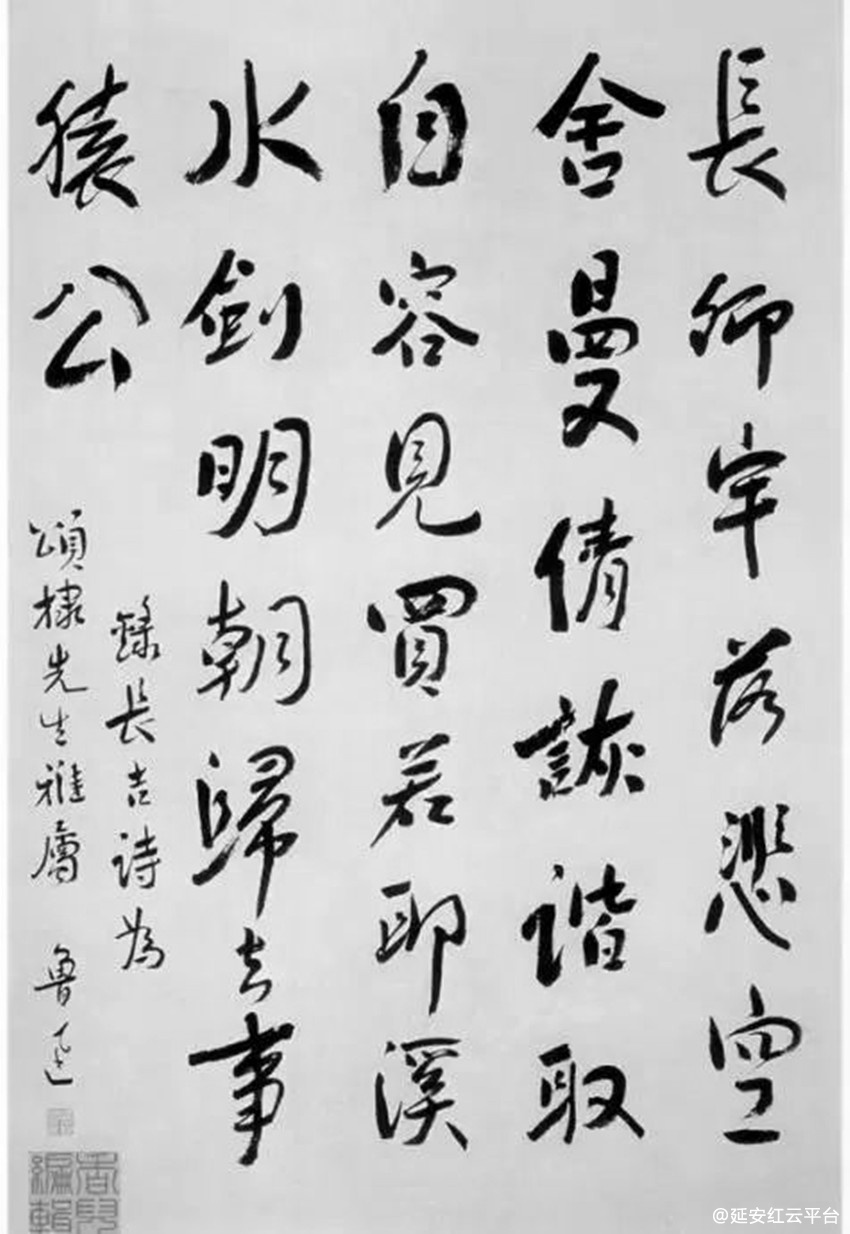 長卿牢落悲空
舍曼倩詼諧取
自容見買若耶溪
水劍明朝歸去事
猿公
錄長吉詩為
頌棣先生雅屬 魯迅
@延安红云平台